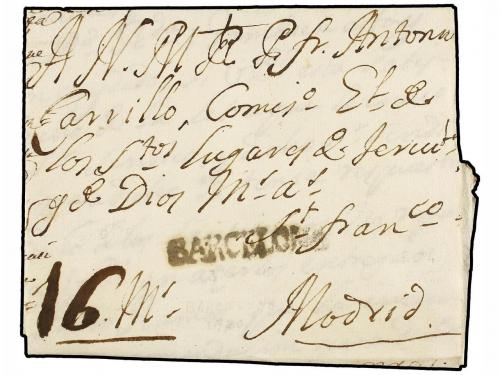 A N. M. R. P. fr. Antonio
Carrillo, Comis.º Gl. de
los S.tos Lugares de Jerus.
g.e Dios m.s a.s
S.t fran.co
BARCELONA
16. M.s Madrid.